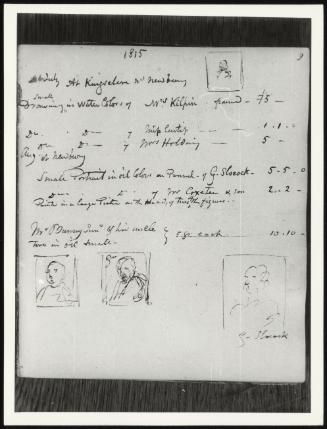 1815
9
July At Kingsclere Nr Newbury
Small
Drawing in Water Colors of Mrs Kilpin framd - 75 -
Do - Do - of Miss Curtis - 1 . 1 -
Do - Do - of Mrs Holding - 5 -
Aug At Newbury
Small Portrait in oil Colors on Pannel - of G. Slocock - 5 - 5 - 0
Do - Do - of Mr Coxeter & son 2 . 2 -
in a large Picture
Mr & his uncle
two in oil small - 5 gs each - 10 . 10 -
G - Slocock